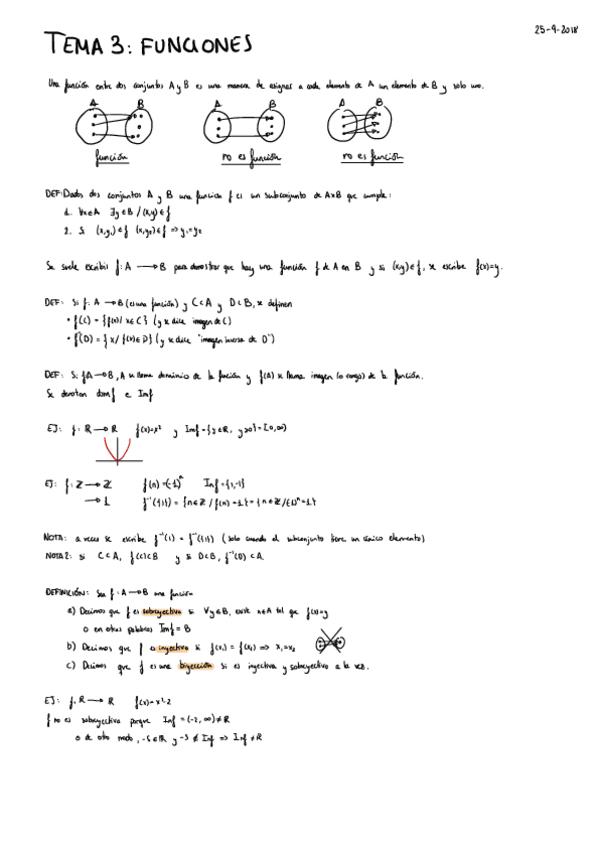 25-9-2018
TEMA 3: FUNCIONES
Una función entre dos conjuntos A y B es una manera de asignar a cada elemento de A un elemento de B y solo uno.
A B A B A B
función no es función no es función
DEF: Dados dos conjuntos A y B una función f es un subconjunto de AxB que cumple:
1. ∀x∈A ∃y∈B / (x,y)∈f
2. Si (x,y₁)∈f (x,y₂)∈f => y₁=y₂
Se suele escribir f: A → B para demostrar que hay una función f de A en B y si (x,y)∈f, se escribe f(x)=y.
DEF: Si f: A → B (es una función) y C⊂A y D⊂B, se definen
• f(C) = {f(x)/ x∈C} (y se dice imagen de C)
• f⁻¹(D) = {x/ f(x)∈D} (y se dice "imagen inversa de D")
DEF: Si f:A→B, A se llama dominio de la función y f(A) se llama imagen (o rango) de la función.
Se denotan domf e Imf
EJ: f: R → R f(x)=x² y Imf={y∈R, y≥0}=[0,∞)
EJ: f: Z → Z f(n)=(-1)ⁿ Imf={1,-1}
→ 1 f⁻¹({1}) = {n∈Z / f(n)=1} = {n∈Z/(-1)ⁿ=1}
NOTA: a veces se escribe f⁻¹(1) = f⁻¹({1}) (solo cuando el subconjunto tiene un único elemento)
NOTA 2: si C⊂A, f(C)⊂B y si D⊂B, f⁻¹(D)⊂A.
DEFINICIÓN: Sea f: A → B una función
a) Decimos que f es sobreyectiva si ∀y∈B, existe x∈A tal que f(x)=y
o en otras palabras Imf = B
b) Decimos que f es inyectiva si f(x₁) = f(x₂) => x₁=x₂
c) Decimos que f es una biyección si es inyectiva y sobreyectiva a la vez.
EJ: f: R → R f(x)=x²-2
f no es sobreyectiva porque Imf = (-2, ∞) ≠ R
o de otro modo, -5∈R y -5∉Imf => Imf ≠ R